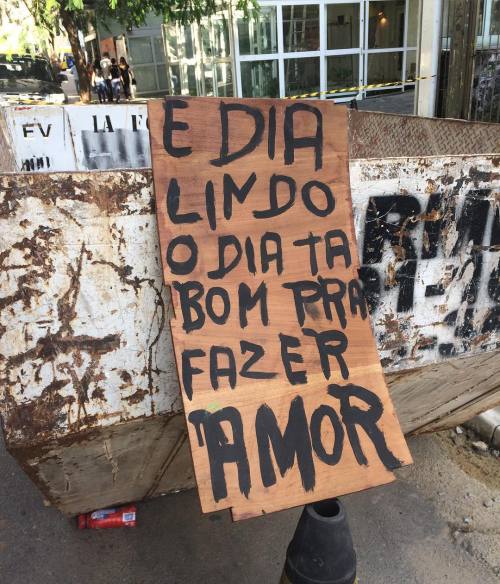 E DIA
LINDO
O DIA TA
BOM PRA
FAZER
AMOR